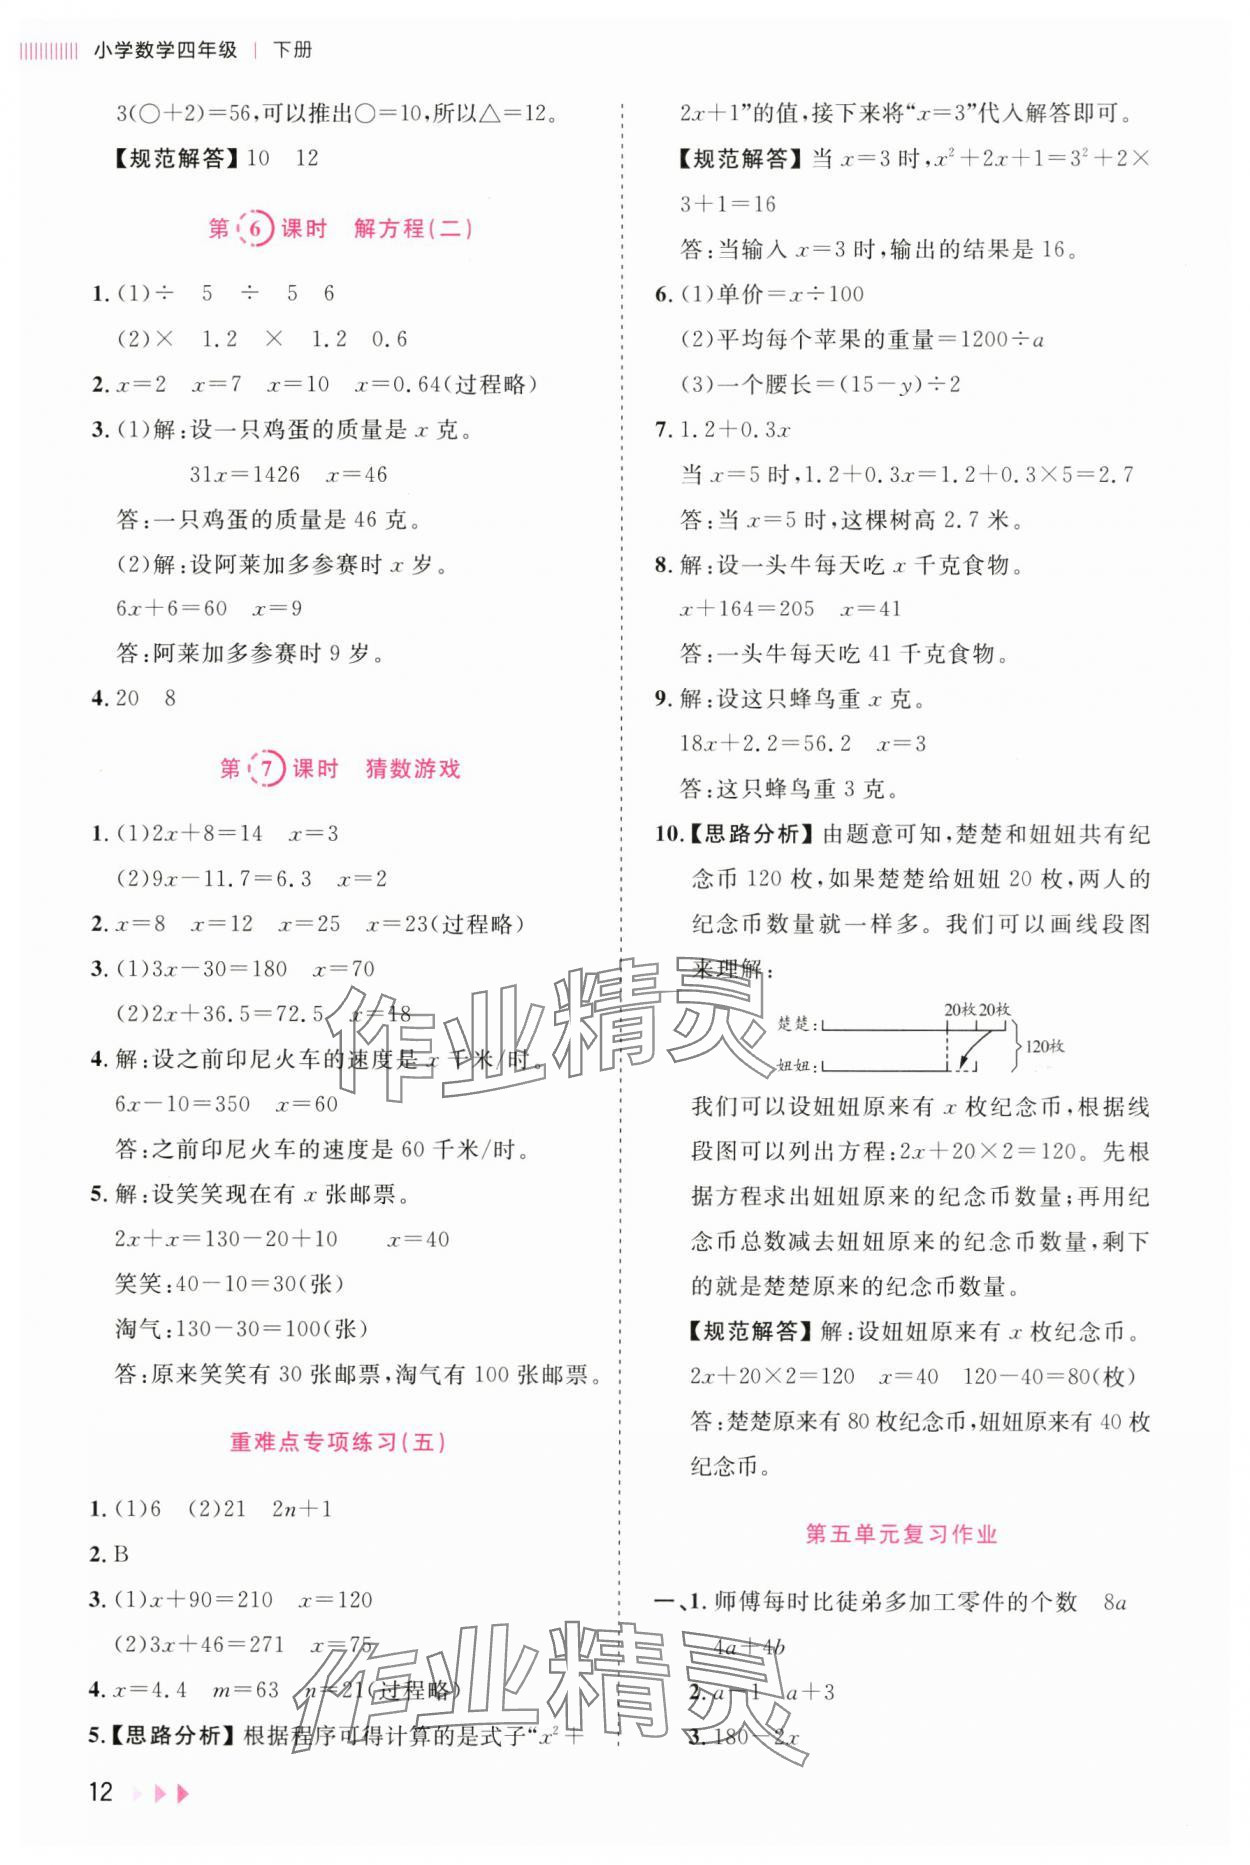 小学数学四年级 | 下册
3(○+2)=56,可以推出○=10,所以△=12。
【规范解答】10 12
第6课时 解方程(二)
1. (1)÷ 5 ÷ 5 6
(2)× 1.2 × 1.2 0.6
2. x=2 x=7 x=10 x=0.64(过程略)
3. (1)解:设一只鸡蛋的质量是 x 克。
31x=1426 x=46
答:一只鸡蛋的质量是 46 克。
(2)解:设阿莱加多参赛时 x 岁。
6x+6=60 x=9
答:阿莱加多参赛时 9 岁。
4. 20 8
第7课时 猜数游戏
1. (1)2x+8=14 x=3
(2)9x-11.7=6.3 x=2
2. x=8 x=12 x=25 x=23(过程略)
3. (1)3x-30=180 x=70
(2)2x+36.5=72.5 x=18
4. 解:设之前印尼火车的速度是 x 千米/时。
6x-10=350 x=60
答:之前印尼火车的速度是 60 千米/时。
5. 解:设笑笑现在有 x 张邮票。
2x+x=130-20+10 x=40
笑笑:40-10=30(张)
淘气:130-30=100(张)
答:原来笑笑有 30 张邮票,淘气有 100 张邮票。
重难点专项练习(五)
1. (1)6 (2)21 2n+1
2. B
3. (1)x+90=210 x=120
(2)3x+46=271 x=75
4. x=4.4 m=63 n=21(过程略)
5. 【思路分析】根据程序可得计算的是式子“x²+
2x+1”的值,接下来将“x=3”代入解答即可。
【规范解答】当 x=3 时,x²+2x+1=3²+2×
3+1=16
答:当输入 x=3 时,输出的结果是 16。
6. (1)单价=x÷100
(2)平均每个苹果的重量=1200÷a
(3)一个腰长=(15-y)÷2
7. 1.2+0.3x
当 x=5 时,1.2+0.3x=1.2+0.3×5=2.7
答:当 x=5 时,这棵树高 2.7 米。
8. 解:设一头牛每天吃 x 千克食物。
x+164=205 x=41
答:一头牛每天吃 41 千克食物。
9. 解:设这只蜂鸟重 x 克。
18x+2.2=56.2 x=3
答:这只蜂鸟重 3 克。
10. 【思路分析】由题意可知,楚楚和妞妞共有纪
念币 120 枚,如果楚楚给妞妞 20 枚,两人的
纪念币数量就一样多。我们可以画线段图
来理解:
20枚 20枚
楚楚:
120枚
妞妞:
我们可以设妞妞原来有 x 枚纪念币,根据线
段图可以列出方程:2x+20×2=120。先根
据方程求出妞妞原来的纪念币数量;再用纪
念币总数减去妞妞原来的纪念币数量,剩下
的就是楚楚原来的纪念币数量。
【规范解答】解:设妞妞原来有 x 枚纪念币。
2x+20×2=120 x=40 120-40=80(枚)
答:楚楚原来有 80 枚纪念币,妞妞原来有 40 枚
纪念币。
第五单元复习作业
一、1. 师傅每时比徒弟多加工零件的个数 8a
4a+4b
2. a-1 a+3
3. 180-2x
作业精灵
作业精灵
12